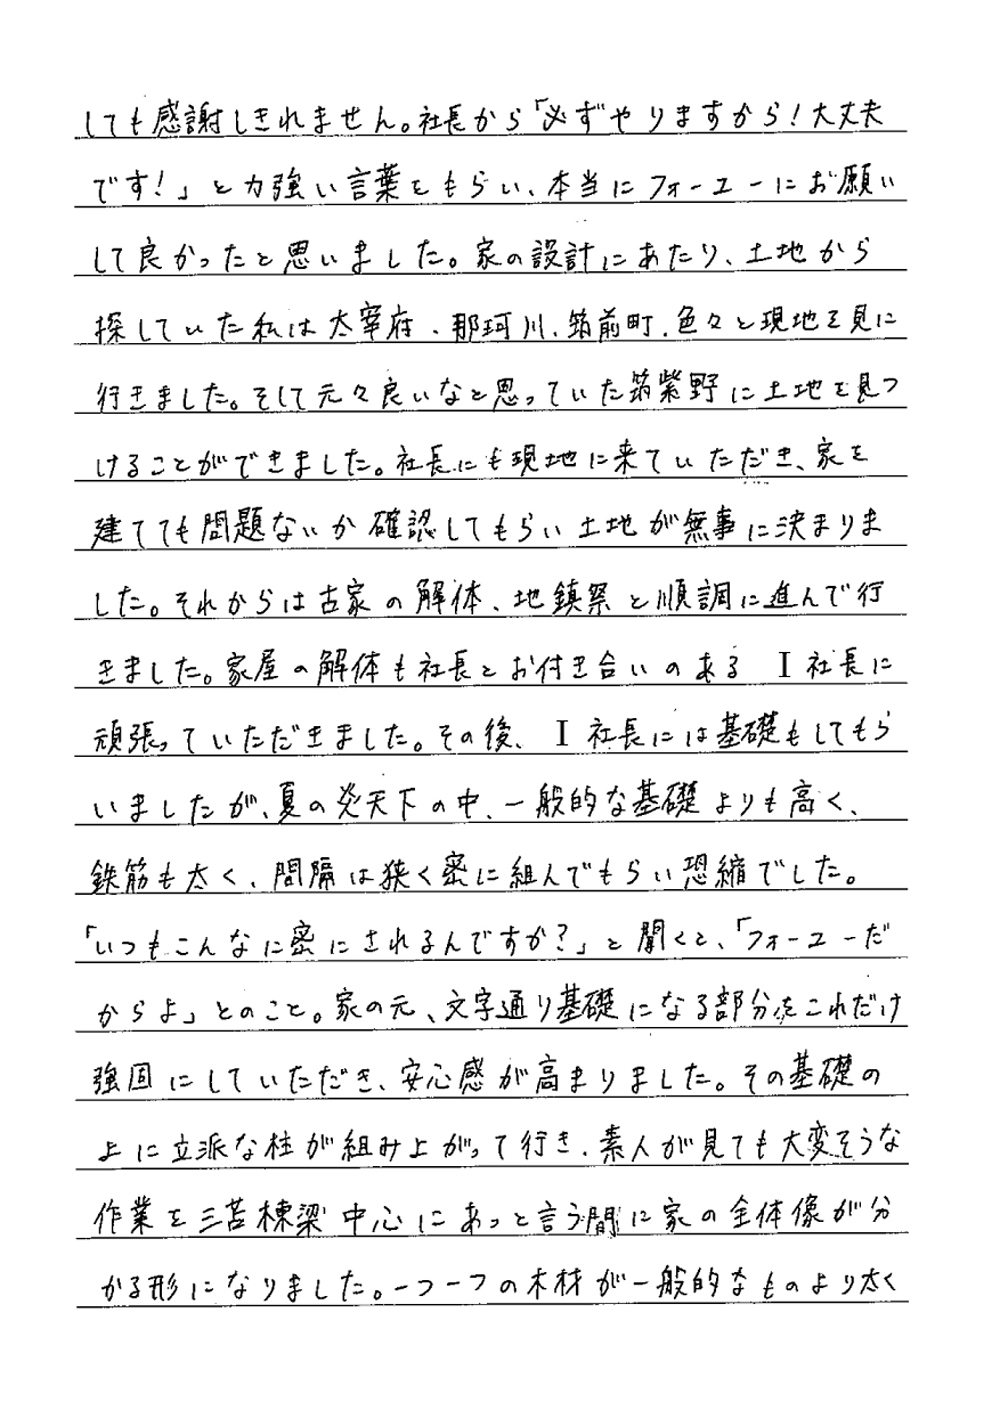 しても感謝しきれません。社長から「必ずやりますから！大丈夫
です！」と力強い言葉をもらい、本当にフォーユーにお願い
して良かったと思いました。家の設計にあたり、土地から
探していた私は太宰府、那珂川、筑前町、色々と現地を見に
行きました。そして元々良いなと思っていた筑紫野に土地を見つ
けることができました。社長にも現地に来ていただき、家を
建てても問題ないか確認してもらい土地が無事に決まりま
した。それからは古家の解体、地鎮祭と順調に進んで行
きました。家屋の解体も社長とお付き合いのある I 社長に
頑張っていただきました。その後、I 社長には基礎もしてもら
いましたが、夏の炎天下の中、一般的な基礎よりも高く、
鉄筋も太く、間隔は狭く密に組んでもらい恐縮でした。
「いつもこんなに密にされるんですか？」と聞くと、「フォーユーだ
からよ」とのこと。家の元、文字通り基礎になる部分をこれだけ
強固にしていただき、安心感が高まりました。その基礎の
上に立派な柱が組み上がって行き、素人が見ても大変そうな
作業を三苫棟梁中心にあっと言う間に家の全体像が分
かる形になりました。一つ一つの木材が一般的なものより太く